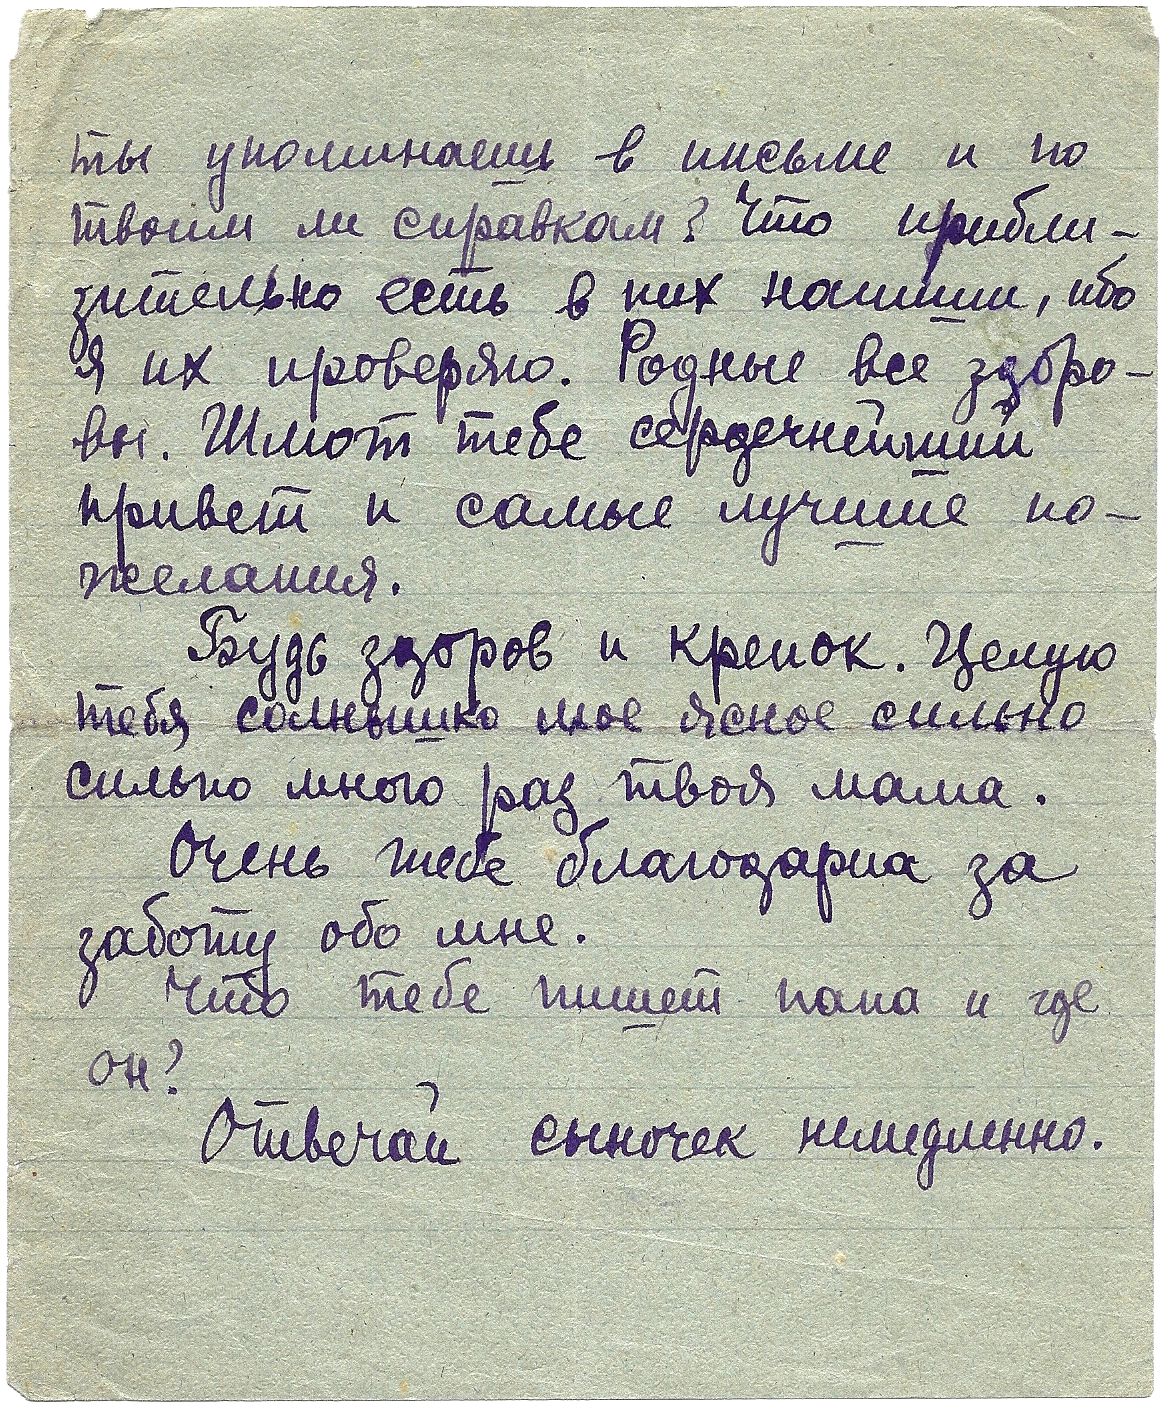 ты упоминаешь в письме и по
твоим ли справкам? Что прибли-
зительно есть в них напиши, ибо
я их проверяю. Родные все здоро-
вы. Шлют тебе сердечнейший
привет и самые лучшие по-
желания.
Будь здоров и крепок. Целую
тебя солнышко мое ясное сильно
сильно много раз твоя мама.
Очень тебе благодарна за
заботу обо мне.
Что тебе пишет папа и где
он?
Отвечай сыночек немедленно.